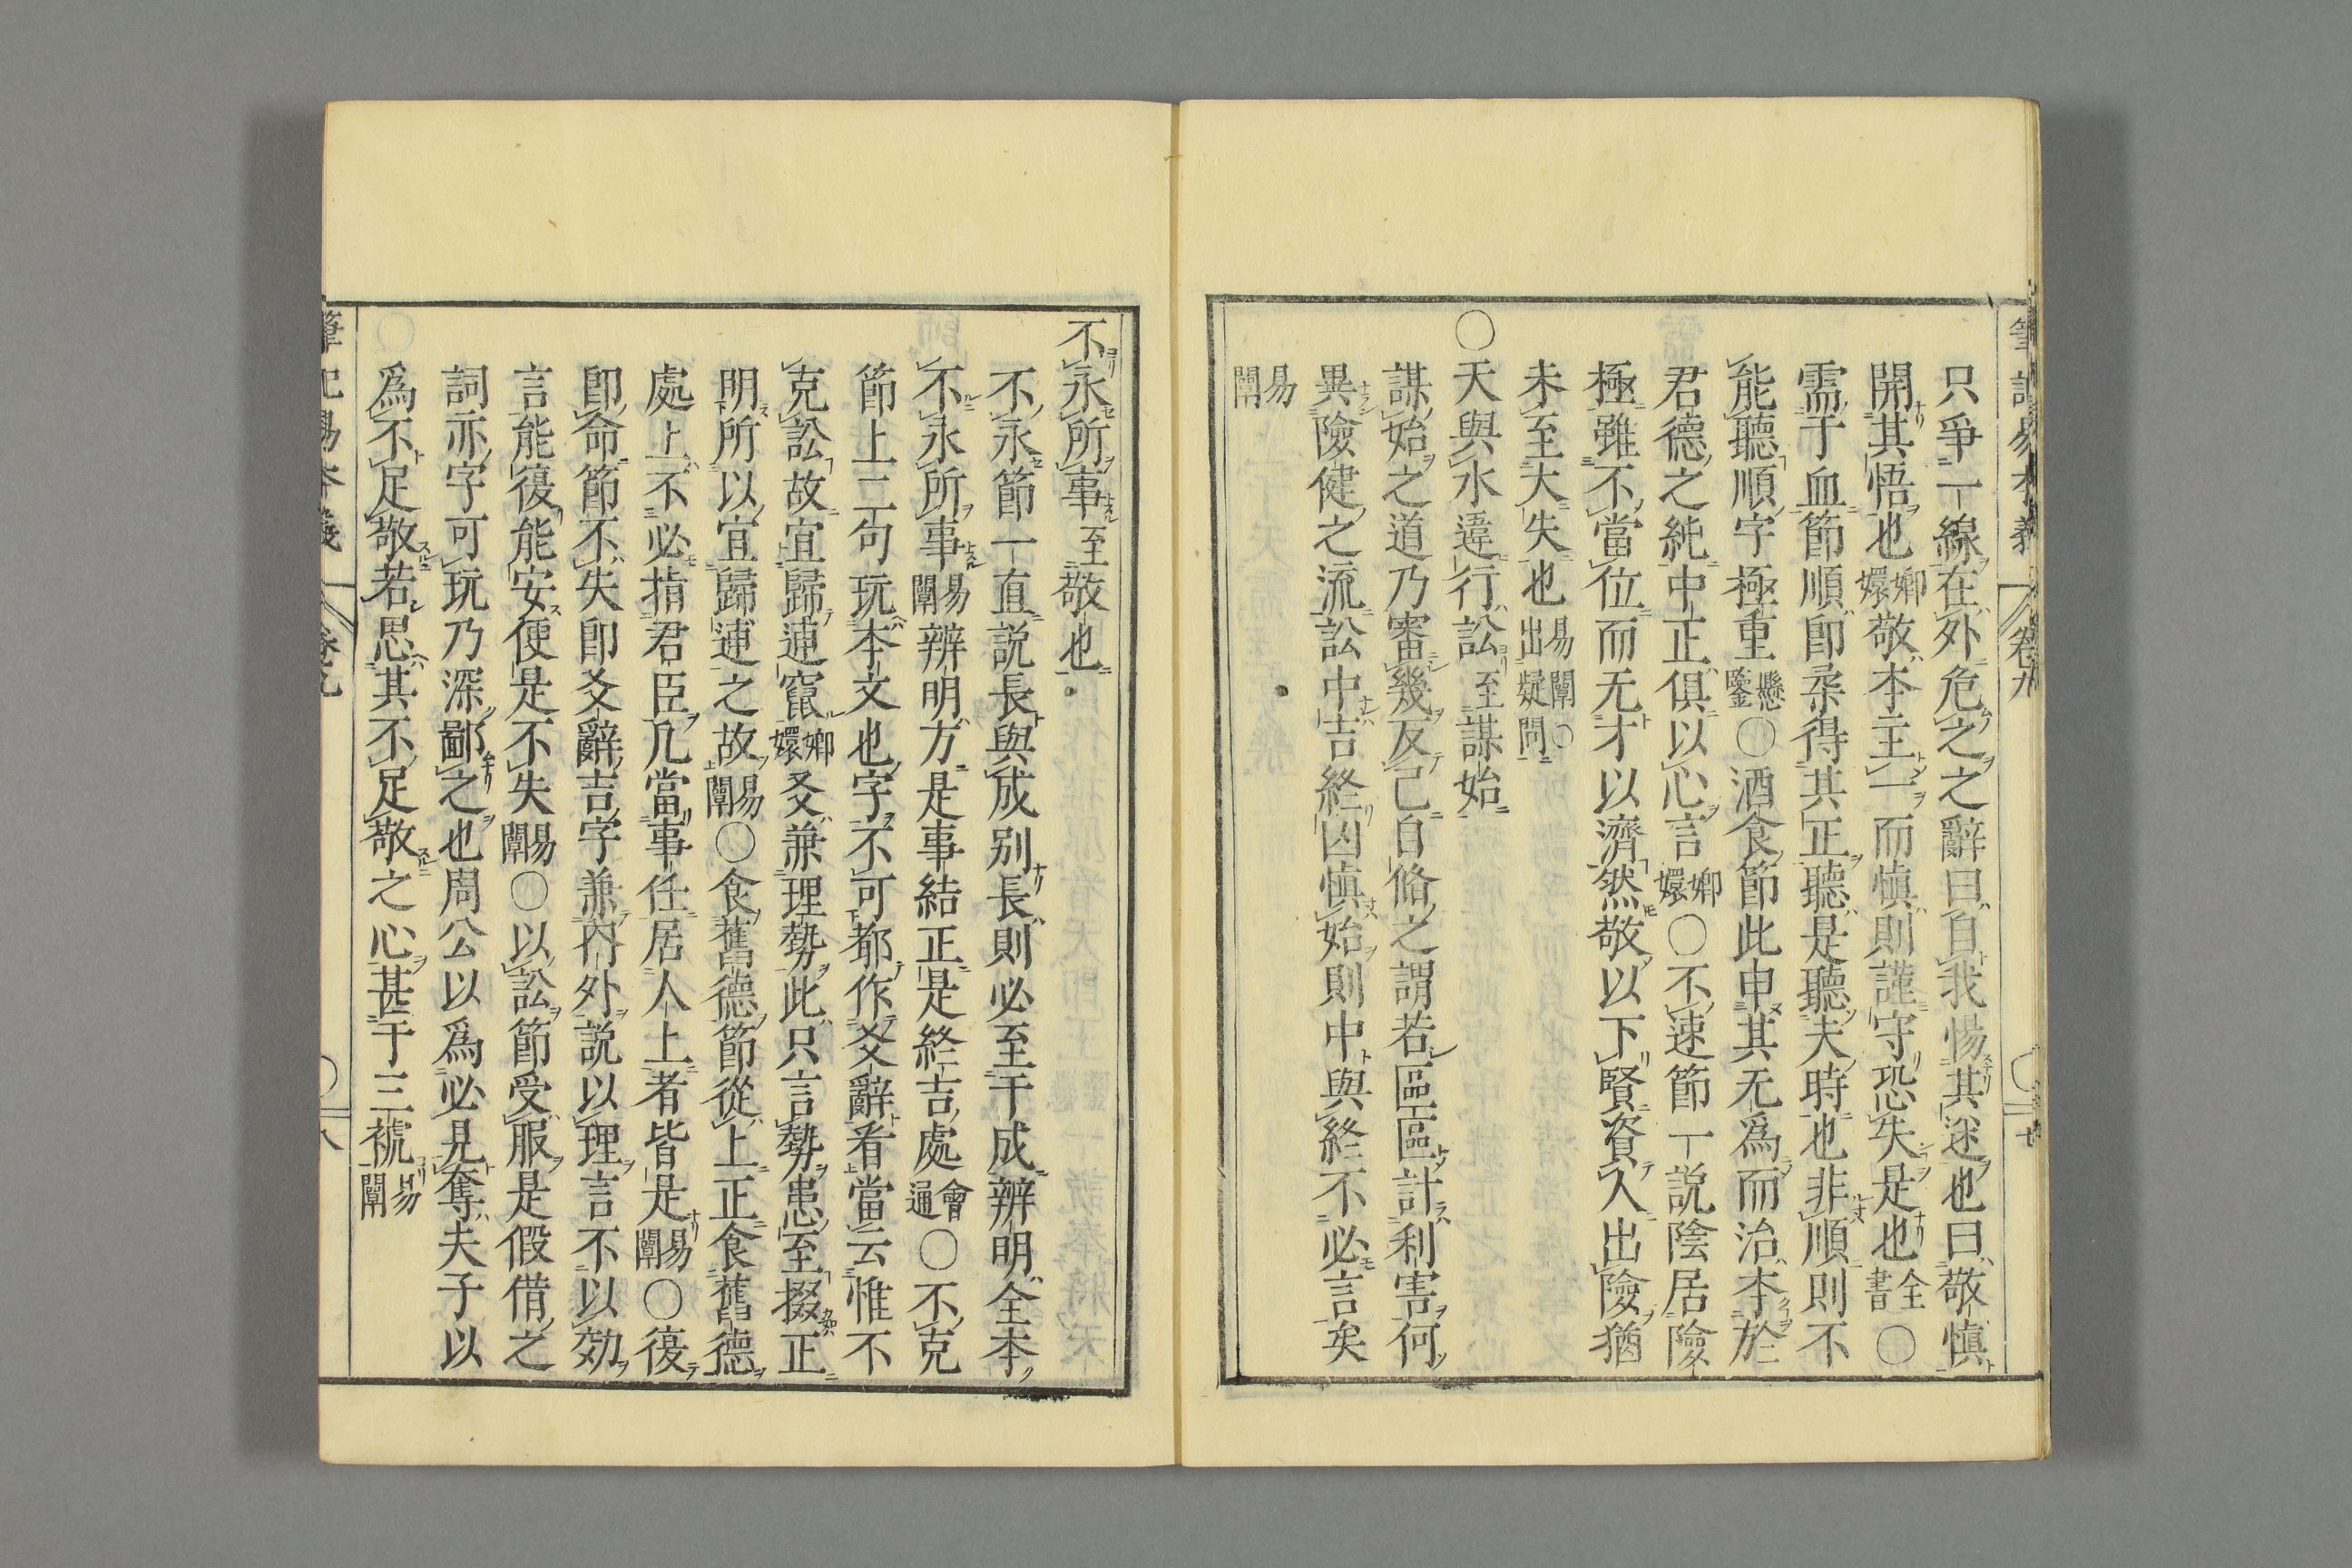 筆記易本義 卷九 〇 七
只爭一線在外危之之辭曰自我惕其迷也曰敬慎
開其悟也嫏嬛敬本主一而慎則謹守恐失是也全書〇
需于血節順即柔得其正聽是聽夫時也非順則不
能聽順字極重懸鑒〇酒食節此申其无爲而治本於
君德之純中正俱以心言嫏嬛〇不速節一説陰居險
極雖不當位而无才以濟然敬以下賢資人出險猶
未至大失也易闡〇出疑問
〇天與水違行訟至謀始
謀始之道乃審幾反己自脩之謂若區區計利害何
異險健之流訟中吉終凶慎始則中與終不必言矣
易闡
不永所事至敬也
不永節一直説長與成別長則必至于成辨明全本
不永所事易闡辨明方是事結正是終吉處會通〇不克
節上二句玩本文也字不可都作爻辭看當云惟不
克訟故宜歸逋竄嫏嬛爻兼理勢此只言勢患至掇正
明所以宜歸逋之故易闡〇食舊德節從上正食舊德
處上不必指君臣凡當事任居人上者皆是易闡〇復
即命節不失即爻辭吉字兼内外説以理言不以効
言能復能安便是不失易闡〇以訟節受服是假借之
詞亦字可玩乃深鄙之也周公以爲必見奪夫子以
爲不足敬若思其不足敬之心甚于三褫易闡
筆記易本義 卷九 〇 八